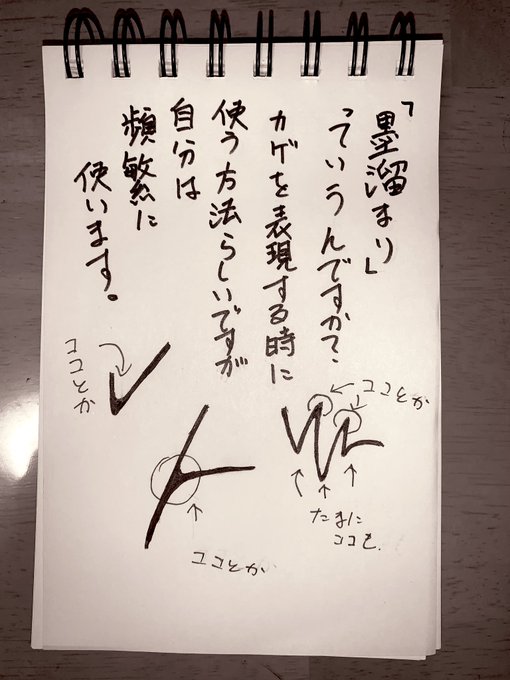 「墨溜まり」
っていうんですか?
カゲを表現する時に
使う方法らしいですが
自分は
頻繁に
使います。
ココとか
ココとか
たまに
ココも
ココとか